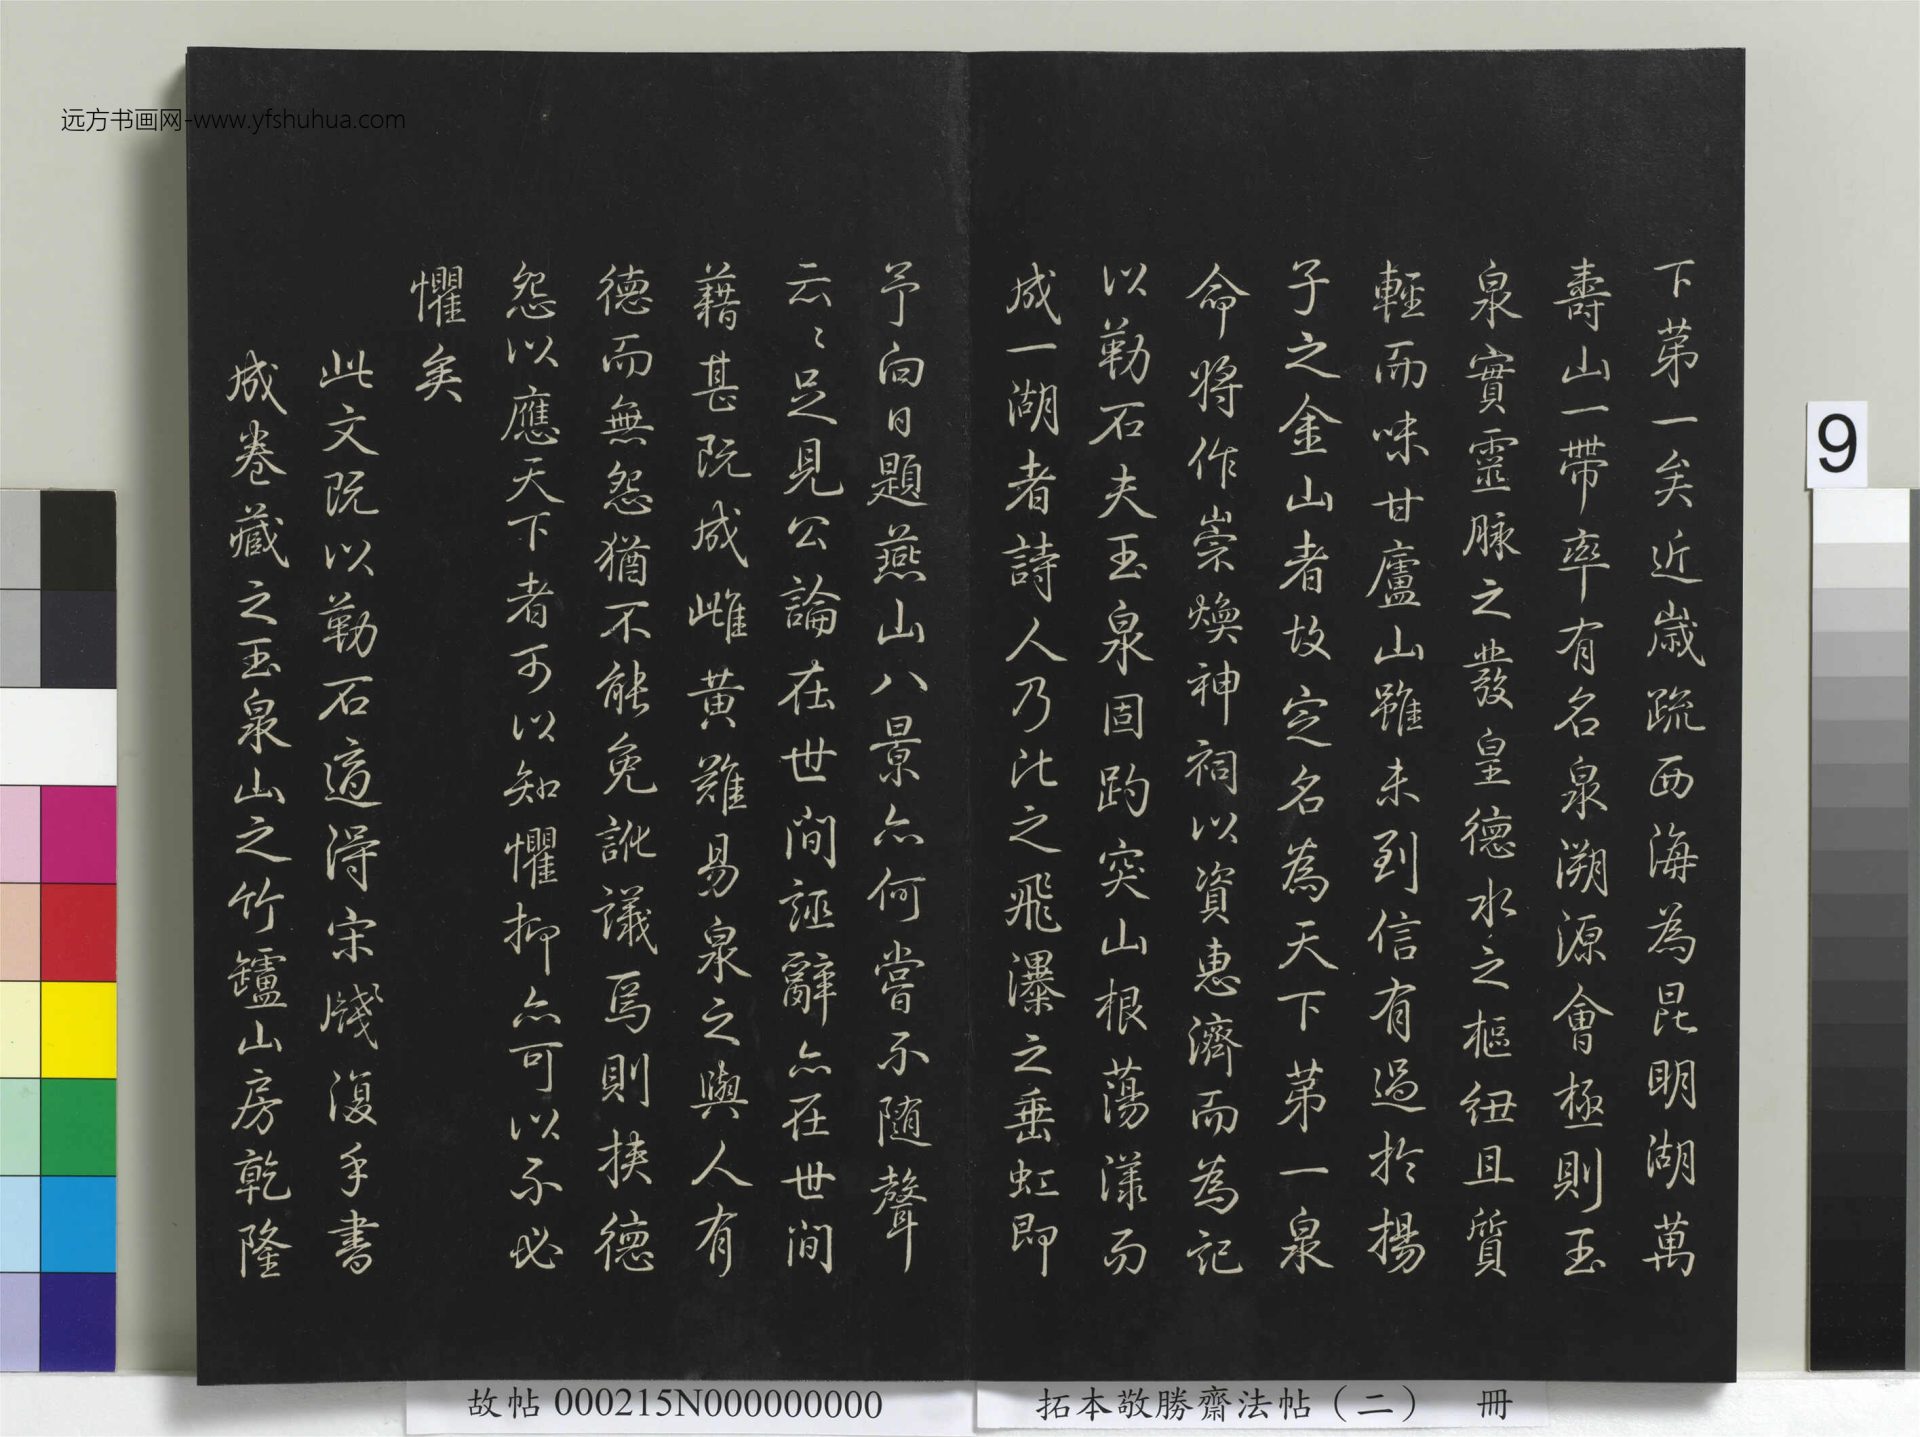 远方书画网-www.yfshuhua.com
下第一矣近歲疏西海為昆明湖萬
壽山一帶率有名泉溯源會極則玉
泉實靈脉之發皇德水之樞紐且質
輕而味甘廬山雖未到信有過於揚
子之金山者故定名為天下第一泉
命將作崇煥神祠以資惠濟而為記
以勒石夫玉泉固趵突山根蕩漾而
成一湖者詩人乃比之飛瀑之垂虹即
予向日題燕山八景亦何嘗不随聲
云〻足見公論在世間誣辭亦在世間
藉甚既成雌黄難易泉之與人有
德而無怨猶不能免訛議焉則挟德
怨以應天下者可以知懼抑亦可以不必
懼矣
此文既以勒石適得宋牋復手書
成卷藏之玉泉山之竹罏山房乾隆
9
故帖000215N000000000
拓本敬勝齋法帖(二) 冊